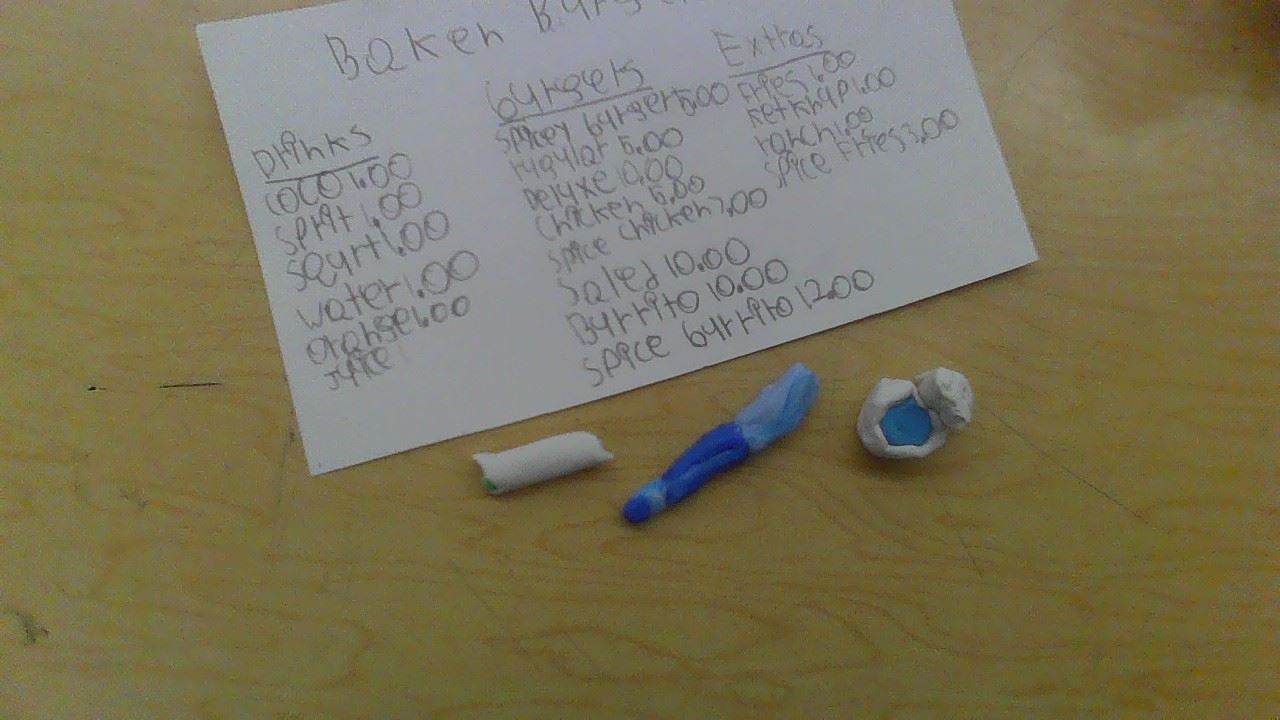 Baken Burge
Drinks
coco 1.00
sprit 1.00
squrt 1.00
water 1.00
orange 1.00
juice
burgers
spicey burger 5.00
regular 5.00
Deluxe 10.00
chicken 5.00
spice chicken 7.00
saled 10.00
Burrito 10.00
spice burrito 12.00
Extras
Fries 1.00
ketkhup 1.00
ranch 1.00
spice Fries 3.00